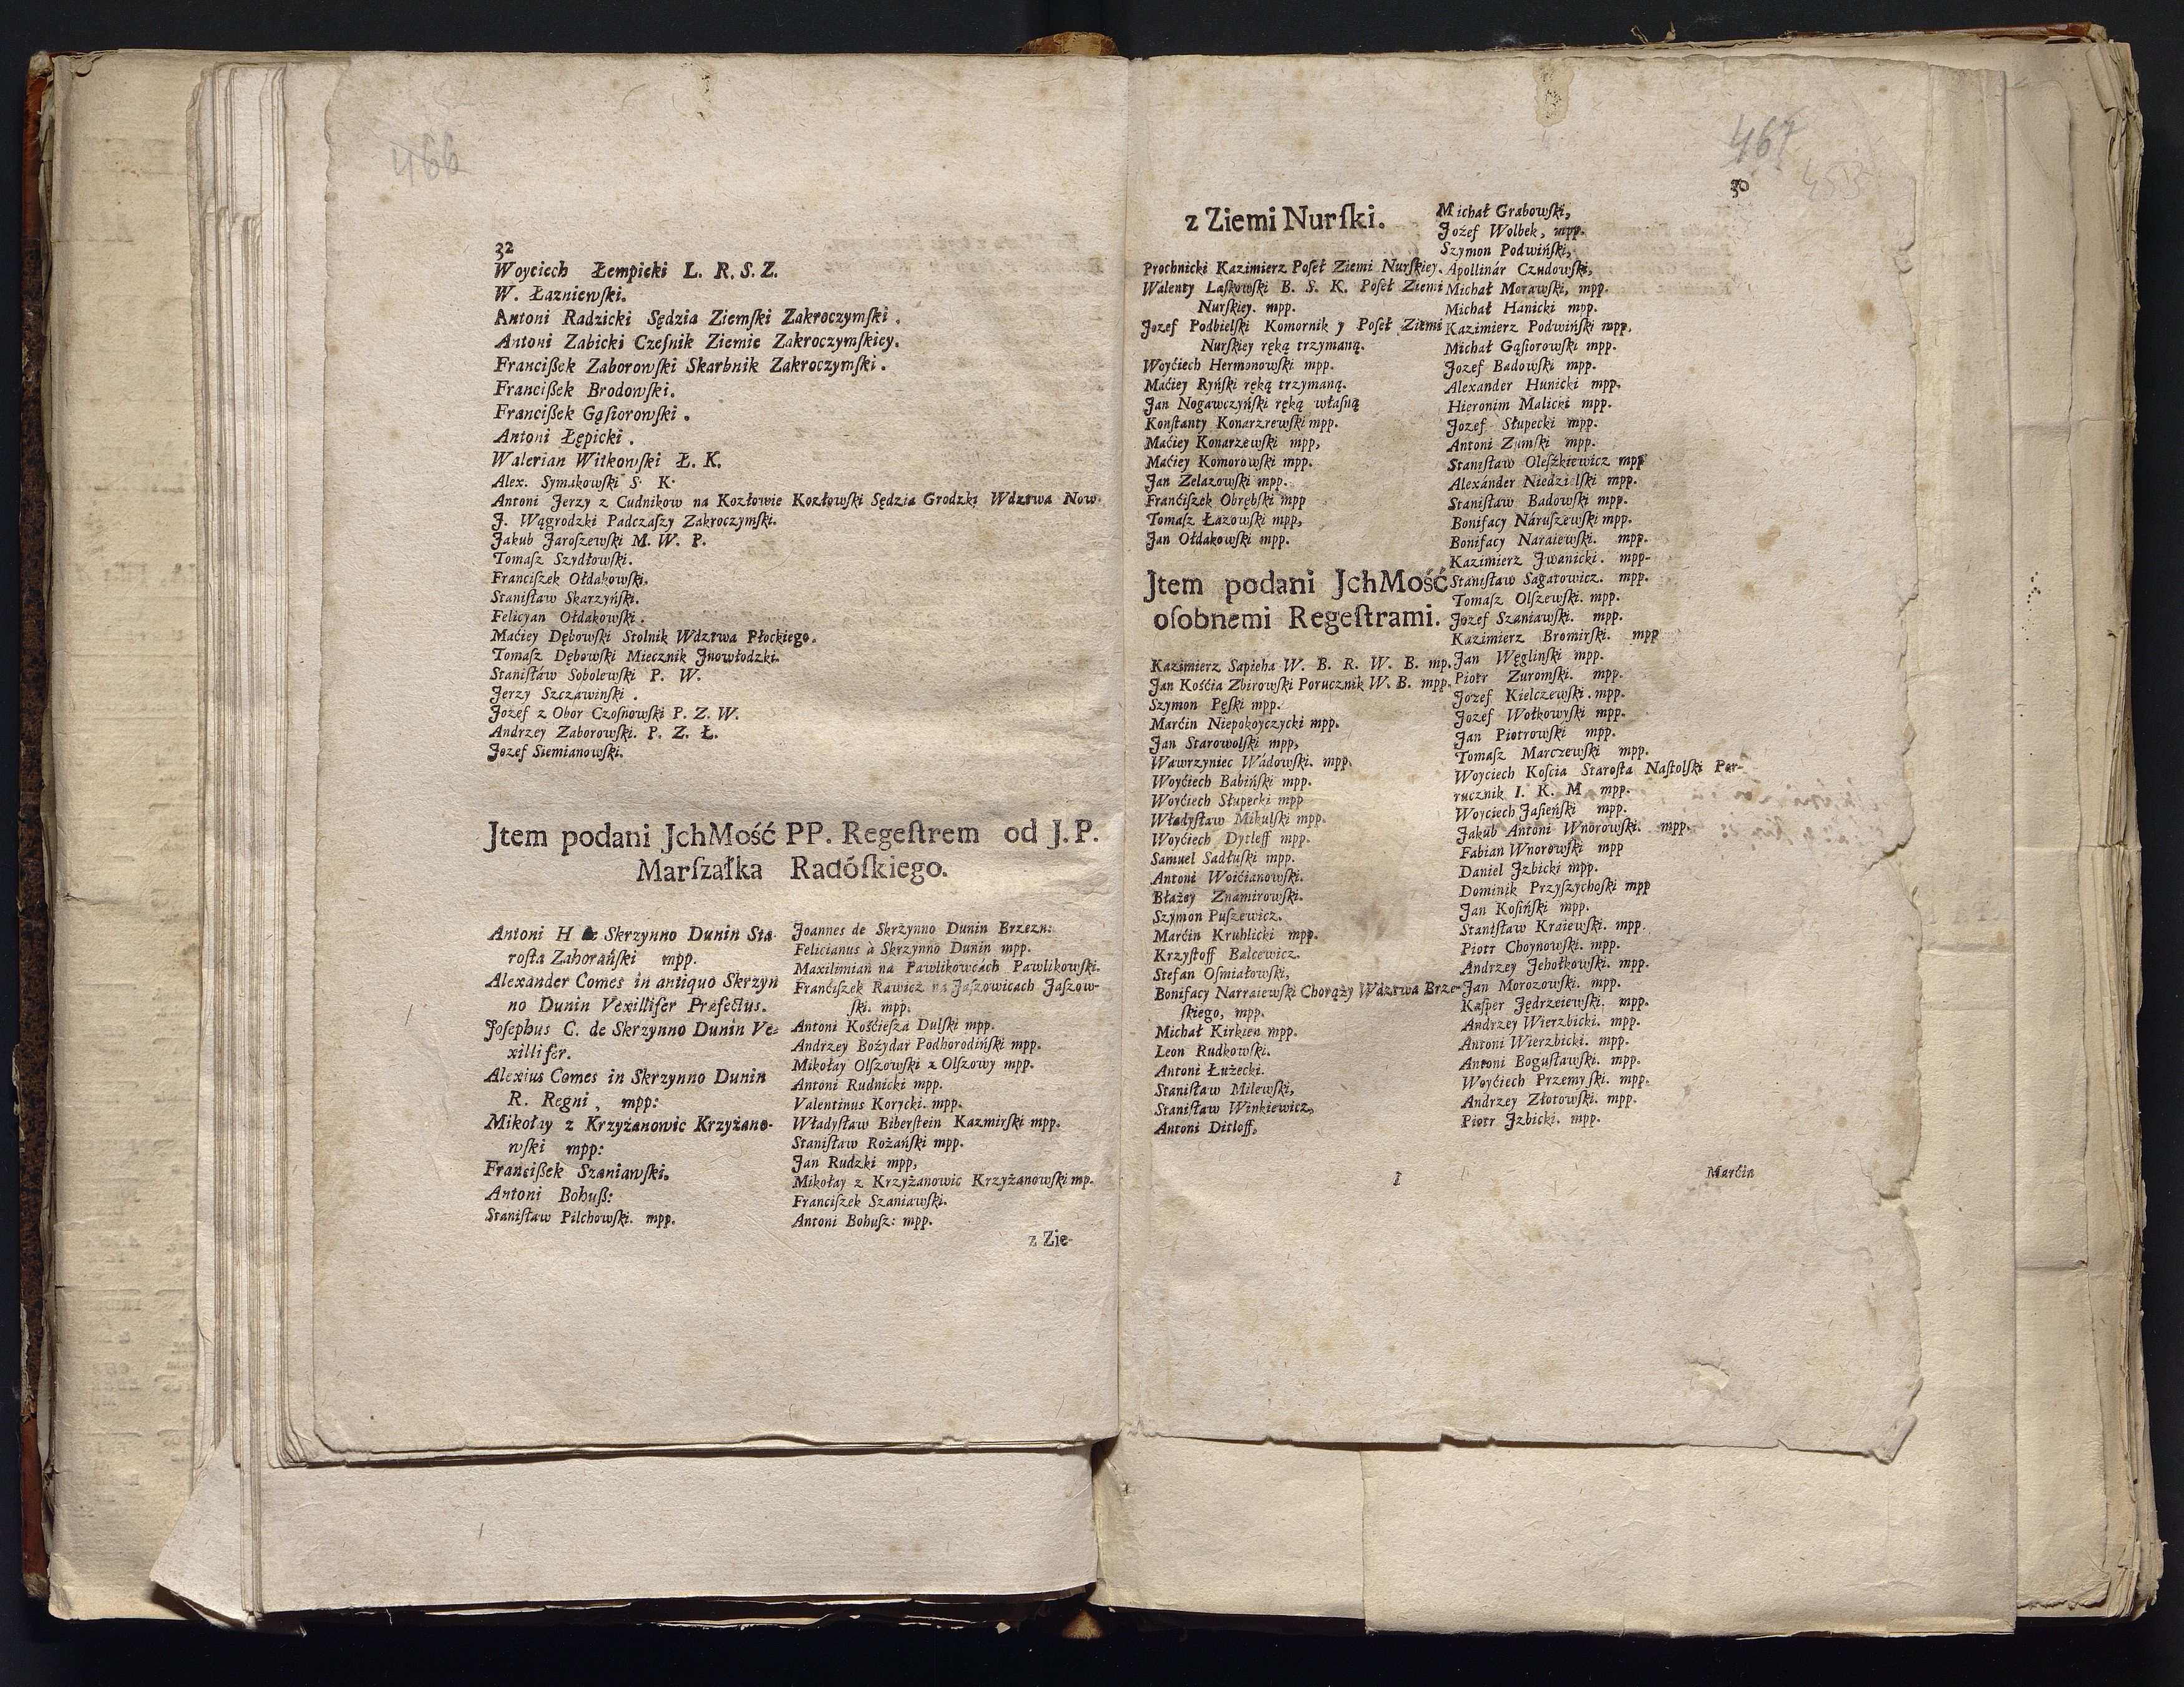 466
32
Woyciech Łempicki L. R. S. Z.
W. Łazniewſki.
Antoni Radzicki Sędzia Ziemſki Zakroczymſki.
Antoni Zabicki Czeſnik Ziemie Zakroczymſkiey.
Franciſzek Zaborowſki Skarbnik Zakroczymſki.
Franciſzek Brodowſki.
Franciſzek Gąſiorowſki.
Antoni Łępicki.
Walerian Witkowſki Ł. K.
Alex. Symakowſki S. K.
Antoni Jerzy z Cudnikow na Kozłowie Kozłowſki Sędzia Grodzki Wdztwa Now.
J. Wągrodzki Padczaſzy Zakroczymſki.
Jakub Jaroſzewſki M. W. P.
Tomaſz Szydłowſki.
Franciſzek Ołdakowſki.
Staniſław Skarzyńſki.
Felicyan Ołdakowſki.
Maćiey Dębowſki Stolnik Wdztwa Płockiego.
Tomaſz Dębowſki Miecznik Jnowłodzki.
Staniſław Sobolewſki P. W.
Jerzy Szczawinſki.
Jozef z Obor Czoſnowſki P. Z. W.
Andrzey Zaborowſki. P. Z. Ł.
Jozef Siemianowſki.
Jtem podani JchMość PP. Regeſtrem od J. P.
Marſzałka Radóſkiego.
Antoni H Skrzynno Dunin Sta-
roſta Zahorańſki mpp.
Alexander Comes in antiquo Skrzyn
no Dunin Vexillifer Præfectus.
Joſephus C. de Skrzynno Dunin Ve-
xillifer.
Alexius Comes in Skrzynno Dunin
R. Regni, mpp:
Mikołay z Krzyżanowic Krzyżano-
wſki mpp:
Franciſzek Szaniawſki.
Antoni Bohuſz:
Staniſław Pilchowſki. mpp.
Joannes de Skrzynno Dunin Brzezn:
Felicianus à Skrzynno Dunin mpp.
Maxilimian na Pawlikowcách Pawlikowſki.
Franćiſzek Rawicz na Jaſzowicach Jaſzow-
ſki. mpp.
Antoni Kośćieſza Dulſki mpp.
Andrzey Bożydar Podhorodińſki mpp.
Mikołay Olſzowſki z Olſzowy mpp.
Antoni Rudnicki mpp.
Valentinus Korycki. mpp.
Władyſław Biberſtein Kazmirſki mpp.
Staniſław Rożańſki mpp.
Jan Rudzki mpp,
Mikołay z Krzyżanowic Krzyżanowſki mp.
Franciſzek Szaniawſki.
Antoni Bohuſz: mpp.
z Zie-
467
453
30
z Ziemi Nurſki.
Prochnicki Kazimierz Poſeł Ziemi Nurſkiey.
Walenty Laſkowſki B. S. K. Poſeł Ziemi
Nurſkiey. mpp.
Jozef Podbielſki Komornik y Poſeł Ziemi
Nurſkiey ręką trzymaną.
Woyćiech Hermonowſki mpp.
Maćiey Ryńſki ręką trzymaną.
Jan Nogawczyńſki ręką właſną
Konſtanty Konarzrewſki mpp.
Maćiey Konarzewſki mpp,
Maćiey Komorowſki mpp.
Jan Zelazowſki mpp.
Franćiſzek Obrębſki mpp
Tomaſz Łazowſki mpp,
Jan Ołdakowſki mpp.
Jtem podani JchMość
oſobnemi Regeſtrami.
Kazimierz Sapieha W. B. R. W. B. mp.
Jan Kośćia Zbirowſki Porucznik W. B. mpp.
Szymon Pęſki mpp.
Marćin Niepokoyczycki mpp.
Jan Starowolſki mpp,
Wawrzyniec Wádowſki. mpp.
Woyćiech Babińſki mpp.
Woyćiech Słupecki mpp
Władyſław Mikulſki mpp.
Woyćiech Dytleff mpp.
Samuel Sadłuſki mpp.
Antoni Woićianowſki.
Błażey Znamirowſki.
Szymon Puſzewicz.
Marćin Kruhlicki mpp.
Krzyſtoff Balcewicz.
Stefan Oſmiałowſki,
Bonifacy Narraiewſki Chorąży Wdztwa Brze-
ſkiego, mpp.
Michał Kirkien mpp.
Leon Rudkowſki.
Antoni Łużecki.
Staniſław Milewſki,
Staniſław Winkiewicz,
Antoni Ditloff,
Michał Grabowſki,
Jożef Wolbek, mpp.
Szymon Podwińſki,
Apollinár Czudowſki,
Michał Morawſki, mpp.
Michał Hanicki mpp.
Kazimierz Podwińſki mpp.
Michał Gąſiorowſki mpp.
Jozef Badowſki mpp.
Alexander Hunicki mpp.
Hieronim Malicki mpp.
Jozef Słupecki mpp.
Antoni Zamſki mpp.
Staniſław Oleſzkiewicz mpp
Alexánder Niedzielſki mpp.
Staniſław Badowſki mpp.
Bonifacy Náruſzewſki mpp.
Bonifacy Naraiewſki. mpp.
Kazimierz Jwanicki. mpp-
Staniſław Sagatowicz. mpp.
Tomaſz Olſzewſki. mpp.
Jozef Szaniawſki. mpp.
Kazimierz Bromirſki. mpp
Jan Węglinſki mpp.
Piotr Zuromſki. mpp.
Jozef Kielczewſki. mpp.
Jozef Wołkowyſki mpp.
Jan Piotrowſki mpp.
Tomaſz Marczewſki mpp.
Woyciech Koſcia Staroſta Naſtolſki Por-
rucznik I. K. M mpp.
Woyciech Jaſieńſki mpp.
Jakub Antoni Wnorowſki. mpp.
Fabian Wnorowſki mpp
Daniel Jzbicki mpp.
Dominik Przyſzychoſki mpp
Jan Koſińſki mpp.
Staniſław Kraiewſki. mpp.
Piotr Choynowſki. mpp.
Andrzey Jehołkowſki. mpp.
Jan Morozowſki. mpp.
Kaſper Jędrzeiewſki. mpp.
Andrzey Wierzbicki. mpp.
Antoni Wierzbicki. mpp.
Antoni Boguſławſki. mpp.
Woyćiech Przemyſki. mpp.
Andrzey Złotowſki. mpp.
Piotr Jzbicki. mpp.
I
Marćin